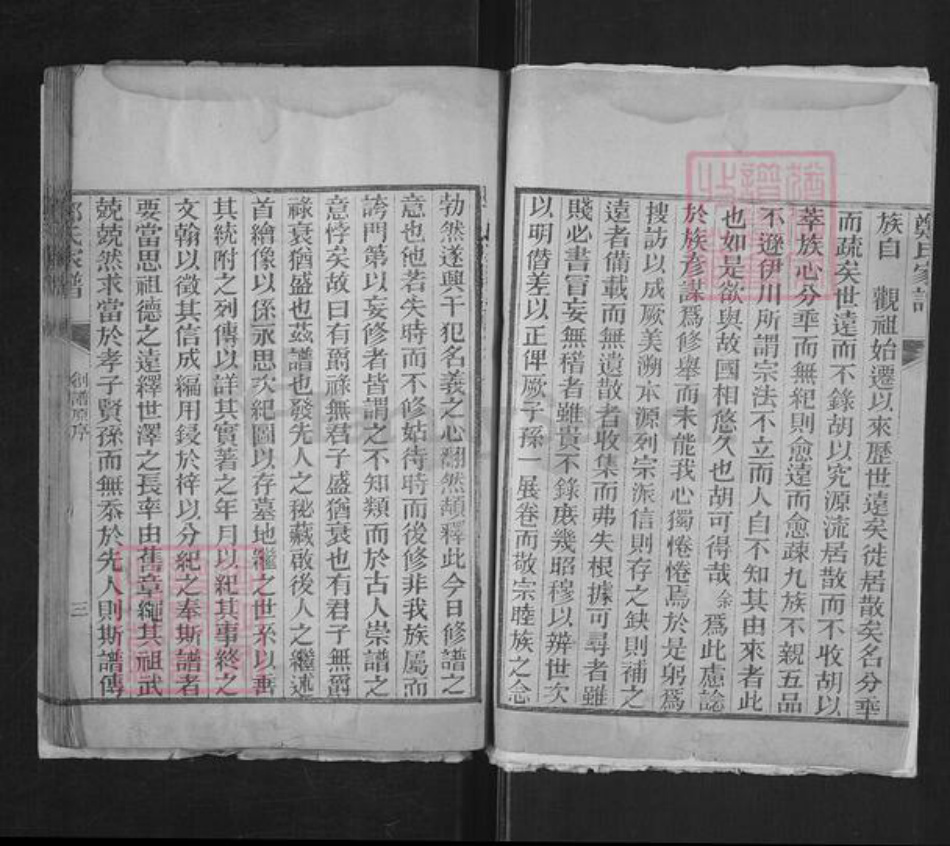 鄭氏家譜
族自　觀祖始遷以來歷世遠矣徙居散矣名分乖
而疏矣世遠而不錄胡以究源流居散而不收胡以
萃族心分乖而無紀則愈遠而愈疎九族不親五品
不遜伊川所謂宗法不立而人自不知其由來者此
也如是欲與故國相悠久也胡可得哉余為此慮諗
於族彥謀為修舉而未能我心獨惓惓焉於是躬為
搜訪以成厥美溯本源列宗派信則存之缺則補之
遠者備載而無遺散者收集而弗失根據可尋者雖
賤必書盲妄無稽者雖貴不錄庻幾昭穆以辨世次
以明僭差以正俾厥子孫一展卷而敬宗睦族之念
勃然遂興干犯名義之心翻然頓釋此今日修譜之
意也他若失時而不修姑待時而後修非我族屬而
誇門第以妄修者皆謂之不知類而於古人崇譜之
意悖矣故曰有爵祿無君子盛猶衰也有君子無爵
祿衰猶盛也茲譜也發先人之秘藏啟後人之繼述
首繪像以係永思次紀圖以存墓地繼之世系以垂
其統附之列傳以詳其實著之年月以紀其事終之
文翰以徵其信成編用鋟於梓以分紀之奉斯譜者
要當思祖德之遠繹世澤之長率由舊章繩其祖武
兢兢然求當於孝子賢孫而無忝於先人則斯譜傳
鄭氏家譜
創譜原序
三